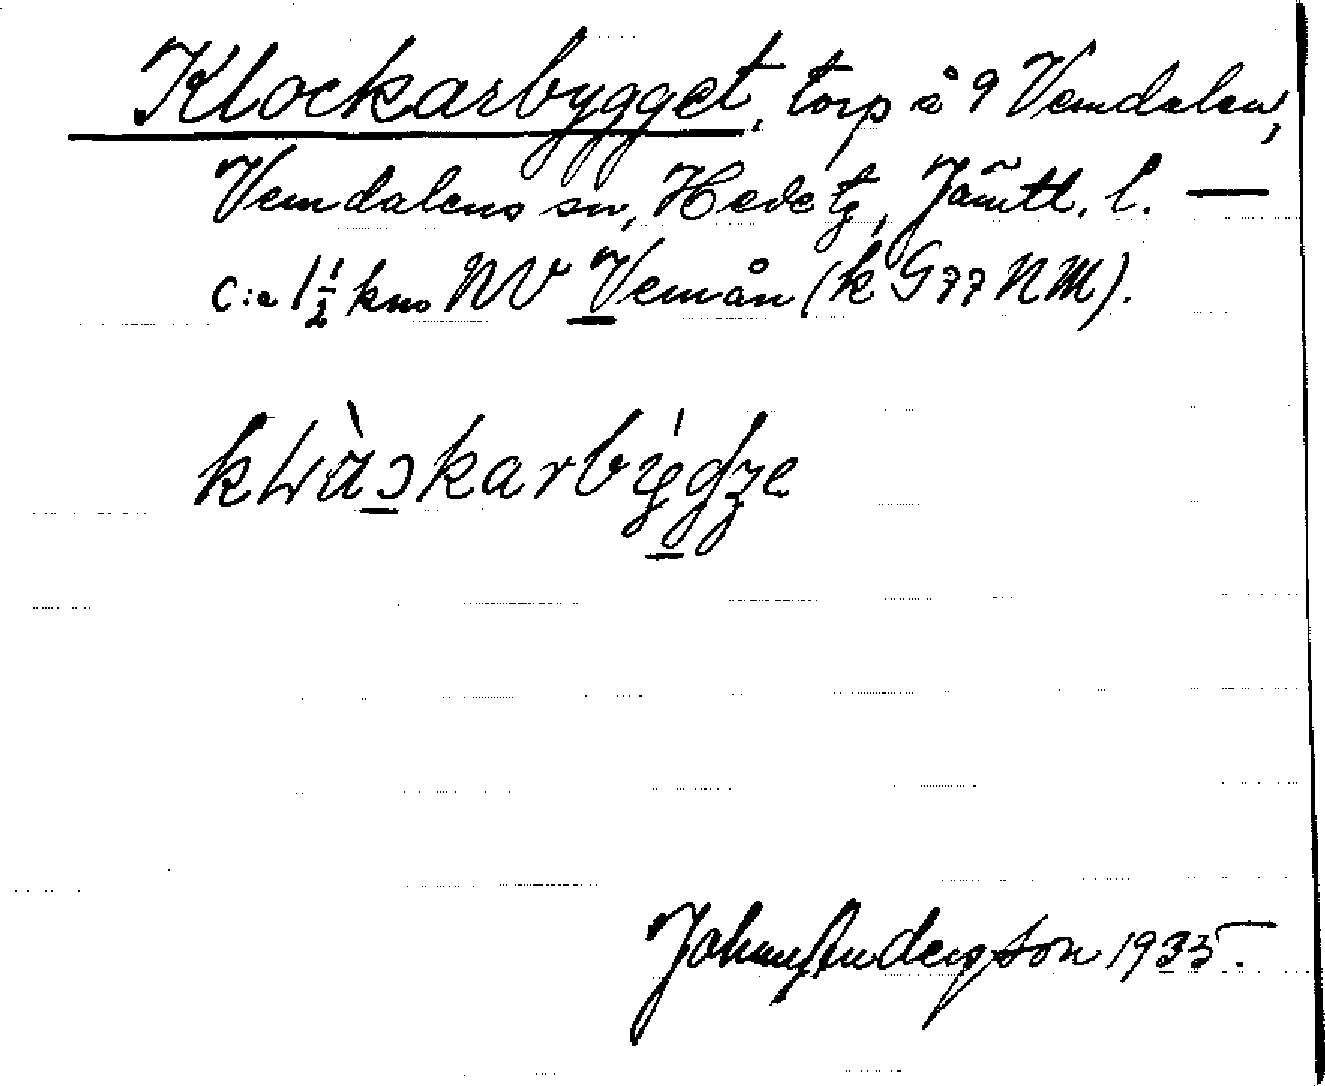 Klockarbygget, torp å 9 Vemdalen,
Vemdalens sn, Hede tg, Jämtl. l. —
c:a 1 1/2 km NV Vemån (k G77 NM).
Johan Anderson 1935.